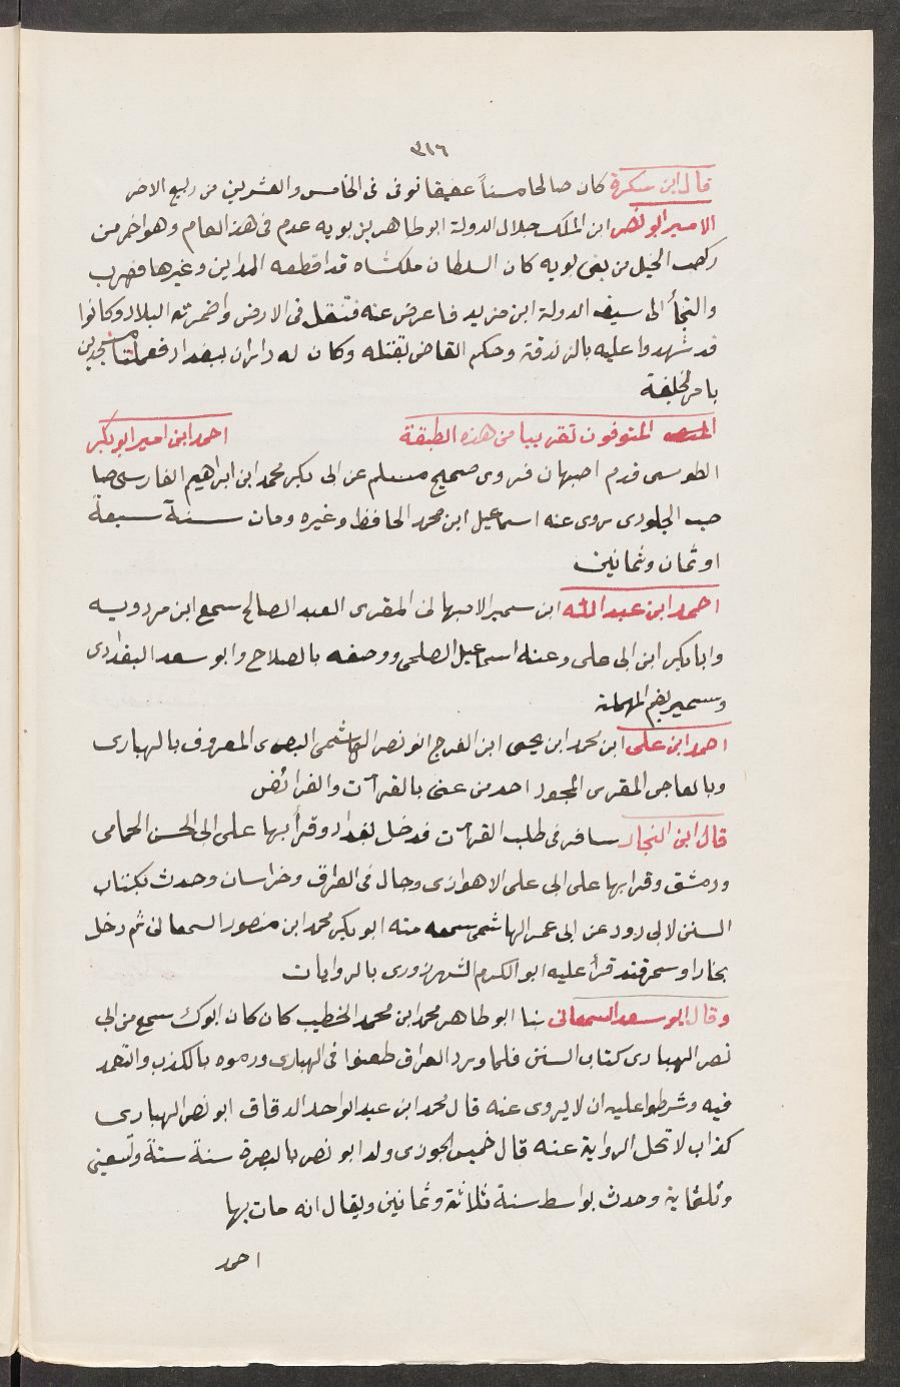 ٣١٦
قال ابن سكرة كان صالحا مسنا عفيفا توفى فى الخامس والعشرين من ربيع الاخر
الامير ابو نصر ابن الملك جلال الدولة ابو طاهر بن بويه عدم فى هذا العام وهو اخر من
ركب الخيل من بنى بويه كان السلطان ملكشاه قد اقطعه المداين وغيرها فهرب
والتجأ الى سيف الدولة ابن مزيد فاعرض عنه فتنقل فى الارض واضمرته البلاد وكانوا
قد شهدوا عليه بالزندقة وحكم القاضى بقتله وكان له داران ببغداد فعملتا مسجدين
بامر الخليفة
المتوفون تقريبا من هذه الطبقة احمد ابن امير ابو بكر
الطوسى قدم اصبهان فروى صحيح مسلم عن ابى بكر محمد ابن ابراهيم الفارسى صا
حب الجلودى روى عنه اسماعيل ابن محمد الحافظ وغيره ومات سنة سبعة
او ثمان وثمانين
احمد ابن عبد الله ابن سمير الاصبهانى المقرى العبد الصالح سمع ابن مردويه
وابا بكر ابن ابى على وعنه اسماعيل الصلحى ووصفه بالصلاح وابو سعد البغدادى
وسمير بضم المهملة
احمد ابن على ابن محمد ابن يحيى ابن الفرج ابو نصر الهاشمى البصرى المعروف بالهبارى
وبالعاجى المقرى المجود احد من عنى بالقرآت والفرائض
قال ابن النجار سافر فى طلب القرآت فدخل بغداد وقرأ بها على ابى الحسن الحمامى
ودمشق وقرا بها على ابى على الاهوازى وجال فى العراق وخراسان وحدث بكتاب
السنن لابى داود عن ابى عمر الهاشمى سمعه منه ابو بكر محمد ابن منصور السمعانى ثم دخل
بخارا وسمرقند قرأ عليه ابو الكرم الشهرزورى بالروايات
وقال ابو سعد السمعانى ثنا ابو طاهر محمد ابن محمد الخطيب كان كان ابوك سمع من ابى
نصر الهبارى كتاب السنن فلما ورد العراق طعنوا فى الهبارى ورموه بالكذب والتعمد
فيه وشرطوا عليه ان لا يروى عنه قال محمد ابن عبد الواحد الدقاق ابو نصر الهبارى
كذاب لا تحل الرواية عنه قال خميس الجوزى ولد ابو نصر بالبصرة سنة ستة وتسعين
وثلثماية وحدث بواسط سنة ثلاثة وثمانين ويقال انه مات بها
احمد